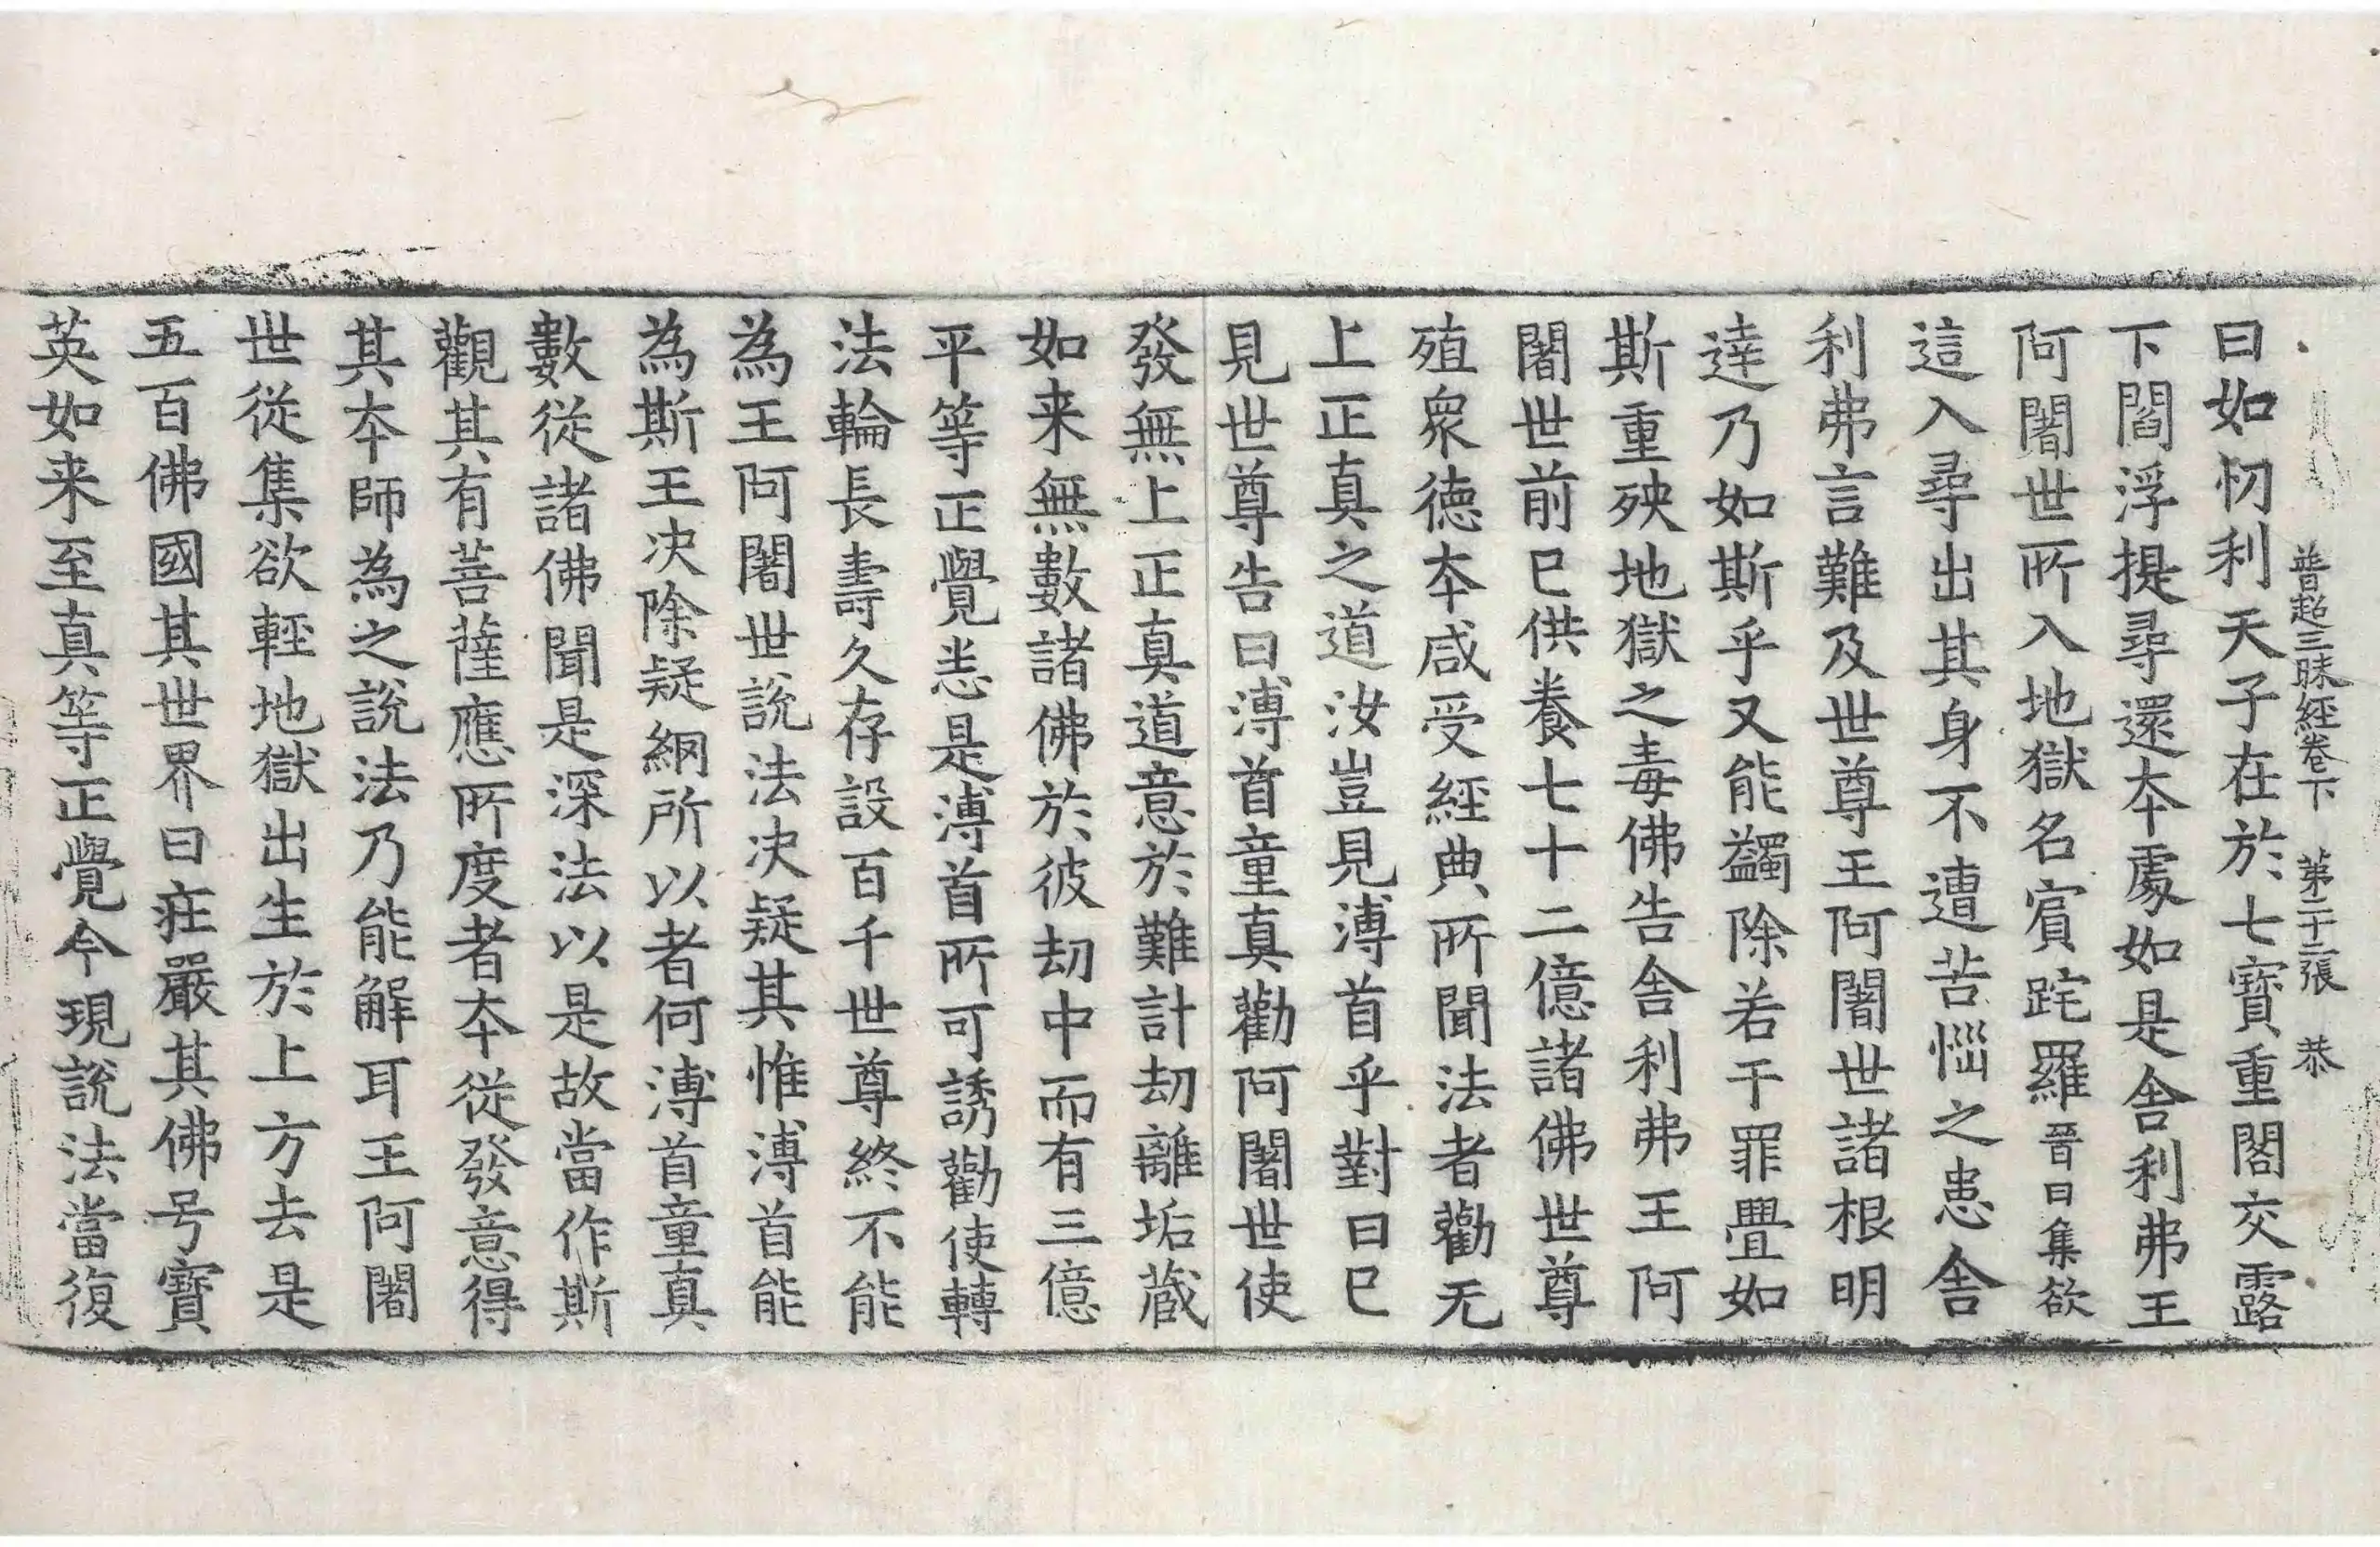 普超三昧經卷下　第二十二張　恭
曰如忉利天子在於七寶重閣交露
下閻浮提尋還本處如是舎利弗王
阿闍世所入地獄名賔跎羅晉曰集欲
這入尋出其身不遭苦惱之患舎
利弗言難及世尊王阿闍世諸根明
達乃如斯乎又能蠲除若干罪畳如
斯重殃地獄之毒佛告舎利弗王阿
闍世前已供養七十二億諸佛世尊
殖衆德本咸受經典所聞法者勸无
上正真之道汝豈見溥首乎對曰已
見世尊告曰溥首童真勸阿闍世使
發無上正真道意於難計劫離垢蔵
如来無數諸佛於彼劫中而有三億
平等正覺悉是溥首所可誘勸使轉
法輪長壽久存設百千世尊終不能
為王阿闍世說法决疑其惟溥首能
為斯王决除疑網所以者何溥首童真
數從諸佛聞是深法以是故當作斯
觀其有菩薩應所度者本從發意得
其本師為之說法乃能解耳王阿闍
世從集欲輕地獄出生於上方去是
五百佛國其世界曰疘嚴其佛号寶
英如来至真等正覺今現說法當復